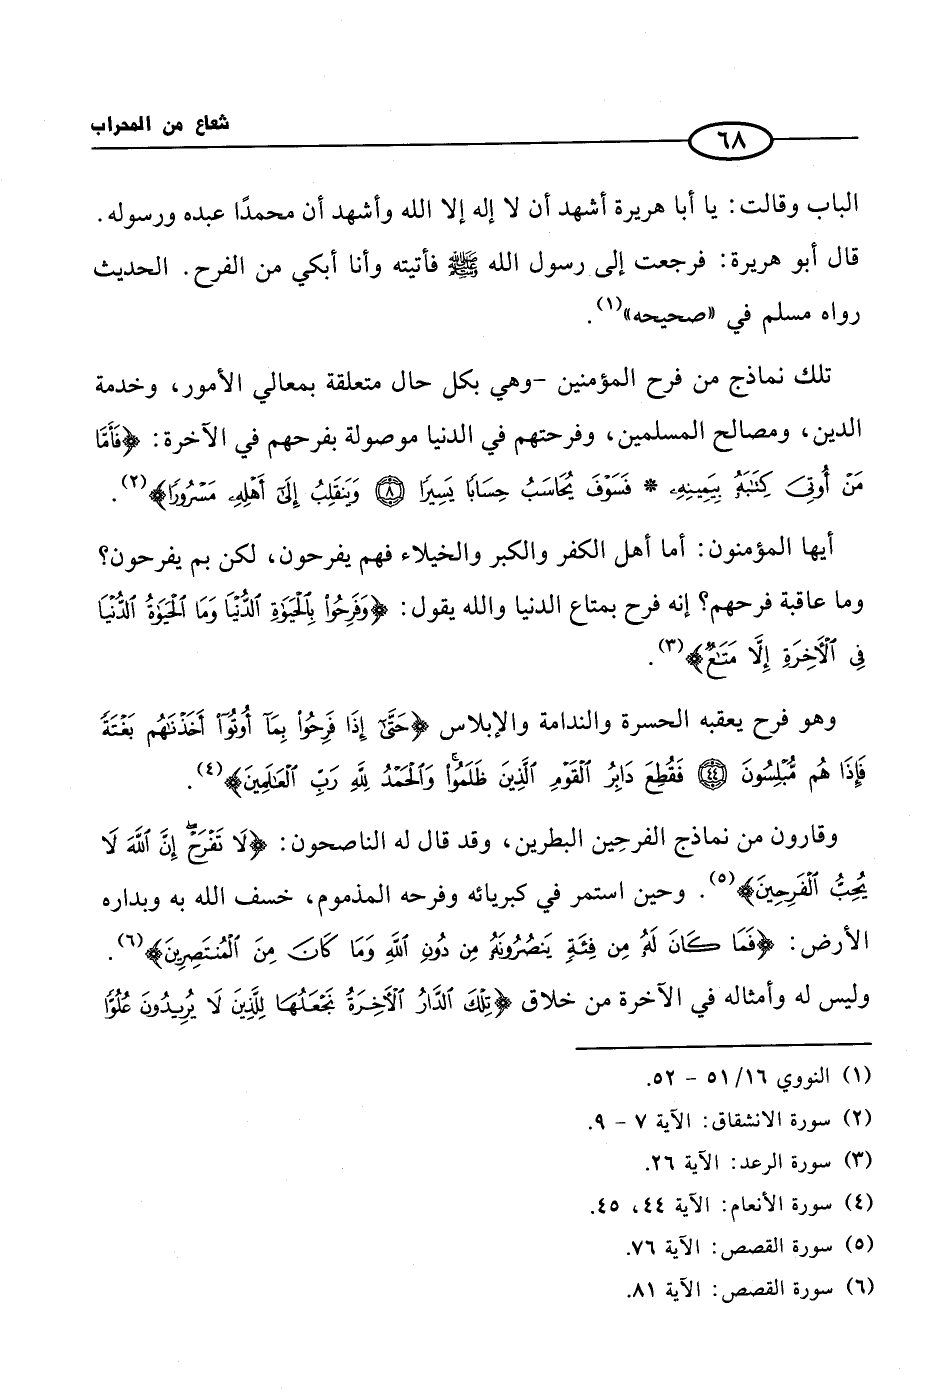 شعاع من المحراب
٦٨
الباب وقالت: يا أبا هريرة أشهد أن لا إله إلا الله وأشهد أن محمدًا عبده ورسوله.
قال أبو هريرة: فرجعت إلى رسول الله ﷺ فأتيته وأنا أبكي من الفرح. الحديث
رواه مسلم في «صحيحه»(١).
تلك نماذج من فرح المؤمنين -وهي بكل حال متعلقة بمعالي الأمور، وخدمة
الدين، ومصالح المسلمين، وفرحتهم في الدنيا موصولة بفرحهم في الآخرة: ﴿فَأَمَّا
مَنْ أُوتِيَ كِتَٰبَهُۥ بِيَمِينِهِۦ * فَسَوْفَ يُحَاسَبُ حِسَابًا يَسِيرًا ۝٨ وَيَنقَلِبُ إِلَىٰٓ أَهْلِهِۦ مَسْرُورًا﴾(٢).
أيها المؤمنون: أما أهل الكفر والكبر والخيلاء فهم يفرحون، لكن بم يفرحون؟
وما عاقبة فرحهم؟ إنه فرح بمتاع الدنيا والله يقول: ﴿وَفَرِحُوا۟ بِٱلْحَيَوٰةِ ٱلدُّنْيَا وَمَا ٱلْحَيَوٰةُ ٱلدُّنْيَا
فِي ٱلْأَخِرَةِ إِلَّا مَتَٰعٌ﴾(٣).
وهو فرح يعقبه الحسرة والندامة والإبلاس ﴿حَتَّىٰٓ إِذَا فَرِحُوا۟ بِمَآ أُوتُوٓا۟ أَخَذْنَٰهُم بَغْتَةً
فَإِذَا هُم مُّبْلِسُونَ ۝٤٤ فَقُطِعَ دَابِرُ ٱلْقَوْمِ ٱلَّذِينَ ظَلَمُوا۟ ۚ وَٱلْحَمْدُ لِلَّهِ رَبِّ ٱلْعَٰلَمِينَ﴾(٤).
وقارون من نماذج الفرحِين البطرين، وقد قال له الناصحون: ﴿لَا تَفْرَحْ ۖ إِنَّ ٱللَّهَ لَا
يُحِبُّ ٱلْفَرِحِينَ﴾(٥). وحين استمر في كبريائه وفرحه المذموم، خسف الله به وبداره
الأرض: ﴿فَمَا كَانَ لَهُۥ مِن فِئَةٍ يَنصُرُونَهُۥ مِن دُونِ ٱللَّهِ وَمَا كَانَ مِنَ ٱلْمُنتَصِرِينَ﴾(٦).
وليس له وأمثاله في الآخرة من خلاق ﴿تِلْكَ ٱلدَّارُ ٱلْأَخِرَةُ نَجْعَلُهَا لِلَّذِينَ لَا يُرِيدُونَ عُلُوًّا
(١) النووي ١٦/ ٥١ - ٥٢.
(٢) سورة الانشقاق: الآية ٧ - ٩.
(٣) سورة الرعد: الآية ٢٦.
(٤) سورة الأنعام: الآية ٤٤، ٤٥.
(٥) سورة القصص: الآية ٧٦.
(٦) سورة القصص: الآية ٨١.